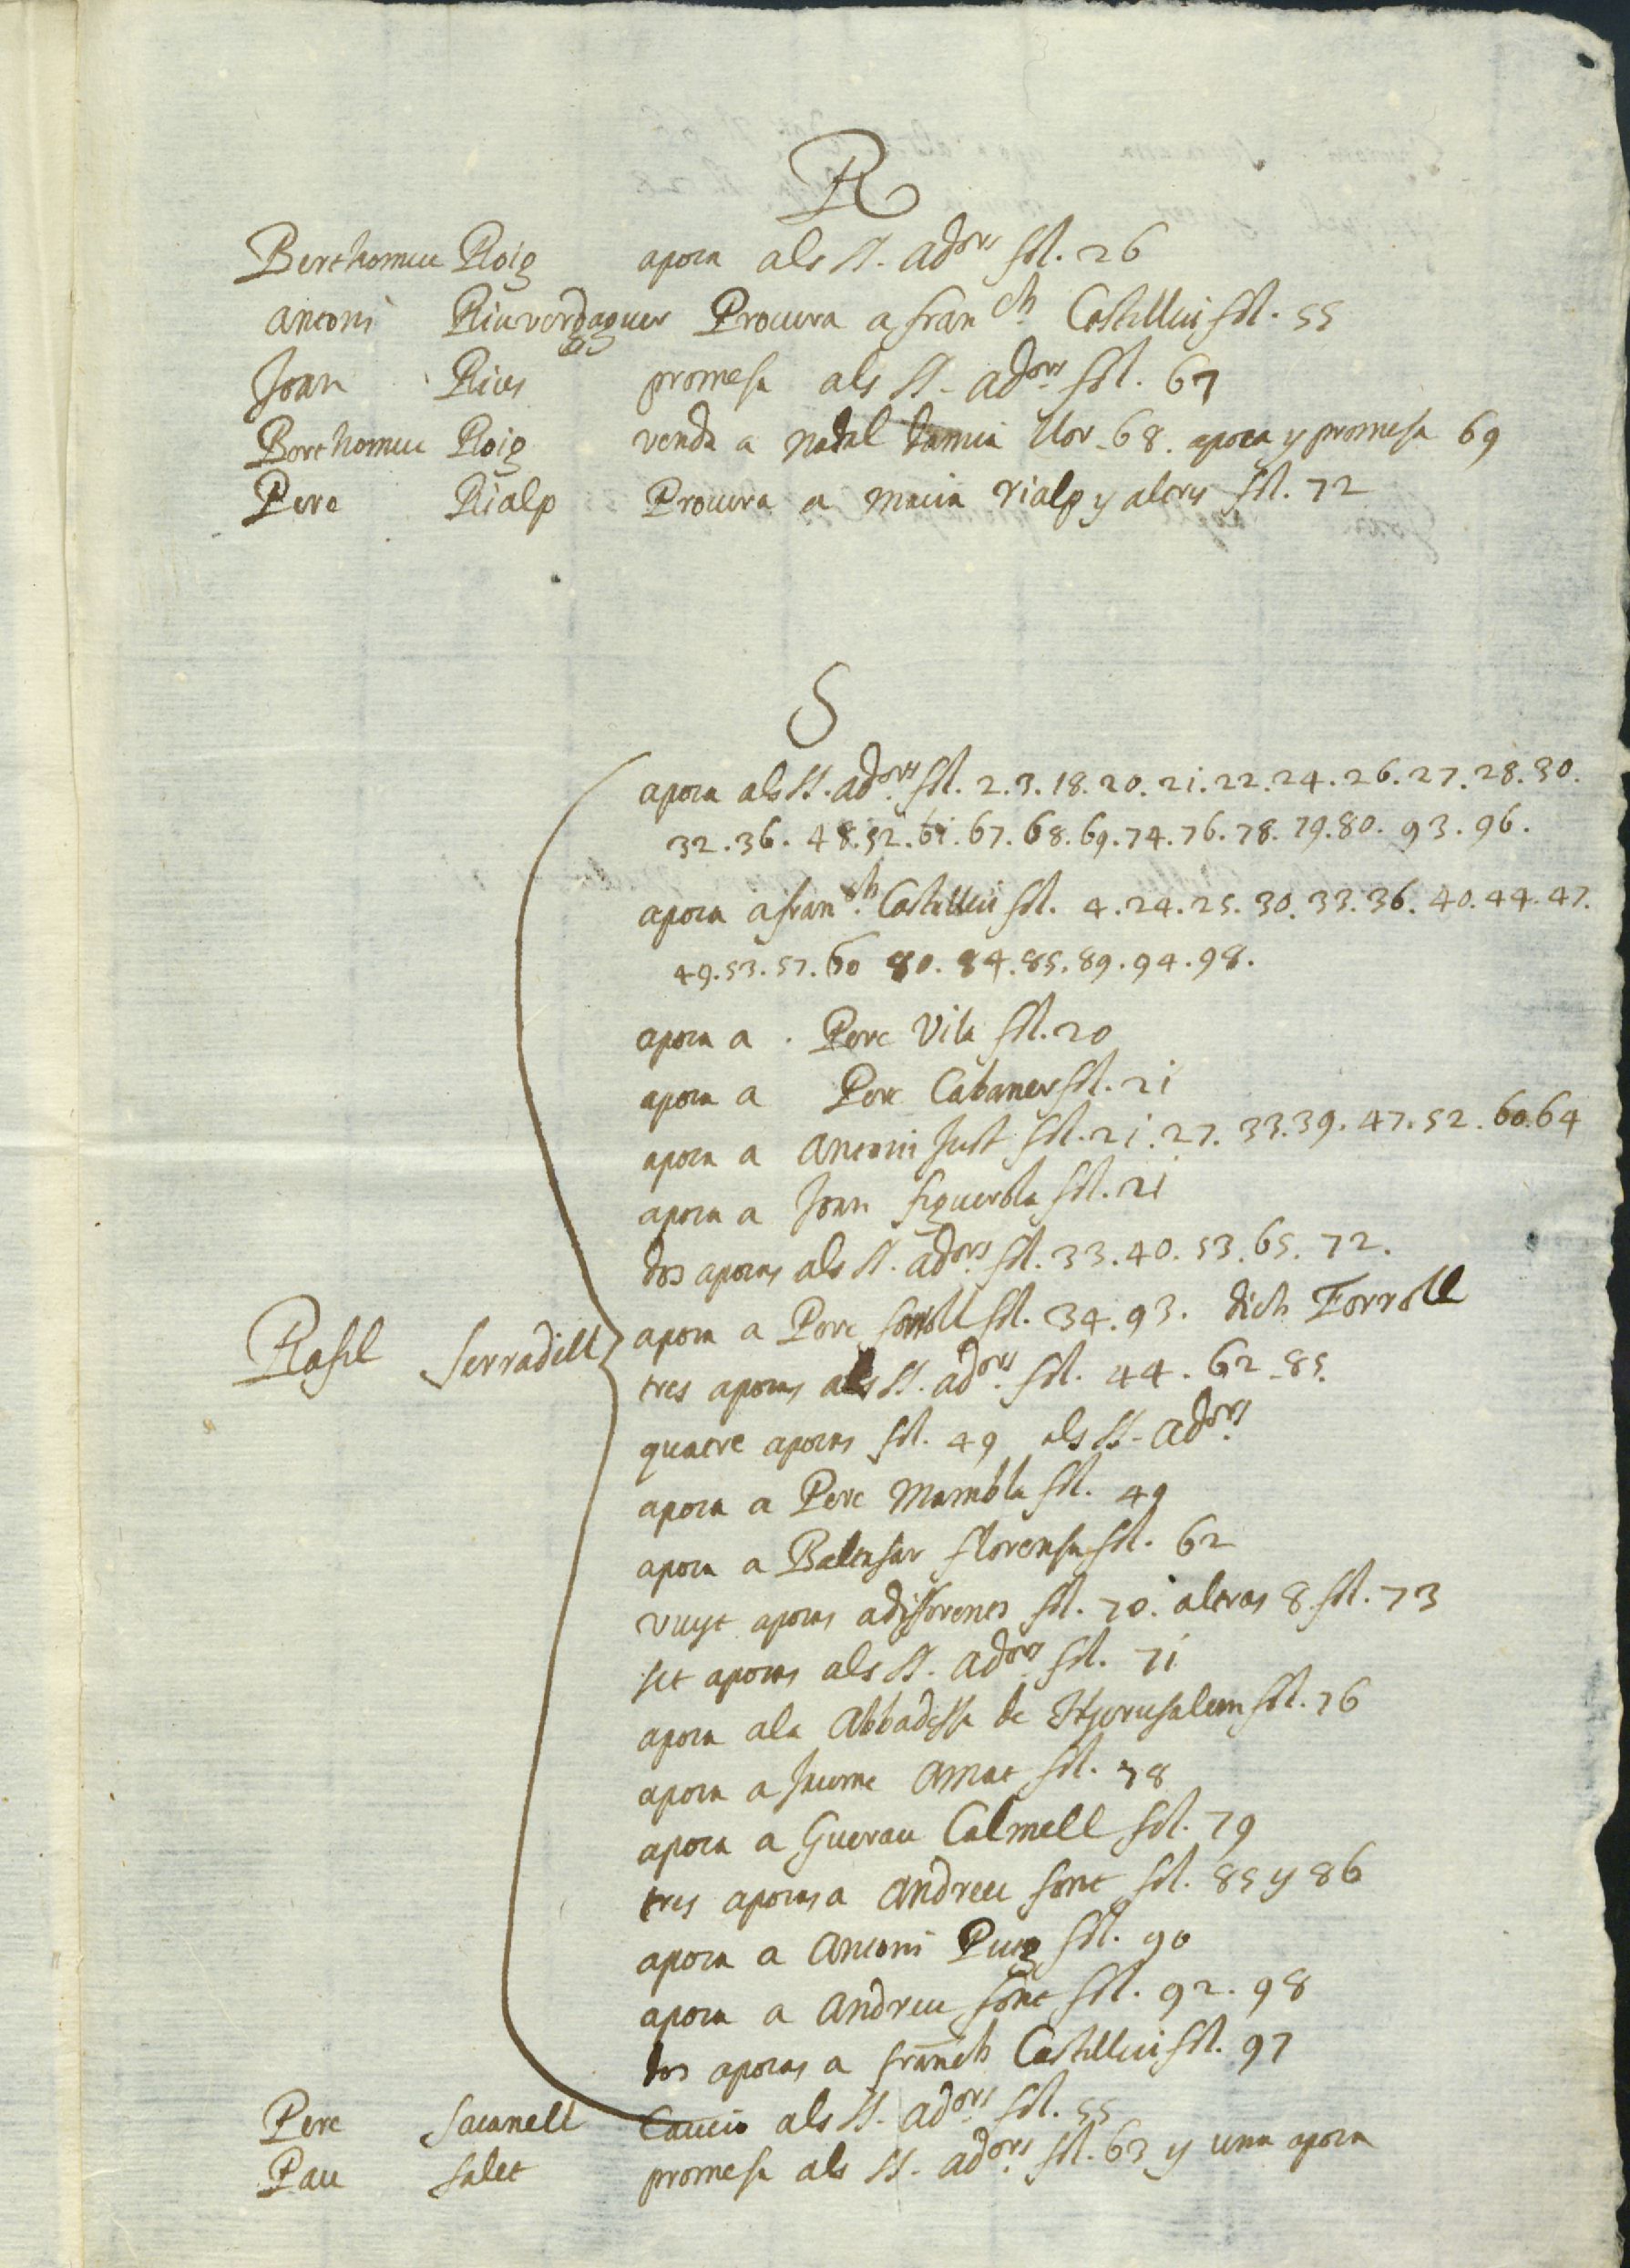 R
Berthomeu Roig apoca als SS. adors fol. 26
Antoni Riuverdaguer Procura a franch Castellui fol. 55
Joan Rius promesa als SS. adors fol. 67
Berthomeu Roig venda a nadal damia llor. 68. apoca y promesa 69
Pere Rialp Procura a macia rialp y altres fol. 72
S
apoca als SS. adors fol. 2. 3. 18. 20. 21. 22. 24. 26. 27. 28. 30.
32. 36. 48. 52. 61. 67. 68. 69. 74. 76. 78. 79. 80. 93. 96.
apoca a franch Castellui fol. 4. 24. 25. 30. 33. 36. 40. 44. 47.
49. 53. 57. 60 80. 84. 85. 89. 94. 98.
apoca a . Pere Vila fol. 20
apoca a Pere Cabaner fol. 21
apoca a Antoni Just fol. 21. 27. 33. 39. 47. 52. 60. 64
apoca a Joan figuerola fol. 21
dos apocas als SS. adors fol. 33. 40. 53. 65. 72.
Rafel Serradell apoca a Pere fol. 34. 93. dich Forroll
tres apocas als SS. adors fol. 44. 62. 85.
quatre apocas fol. 49 als SS. adors
apoca a Pere Mambla fol. 49
apoca a Baltasar florensa fol. 62
vuyt apocas a differents fol. 70. altras 8 fol. 73
set apocas als SS. adors fol. 71
apoca ala Abbadessa de Hjerusalem fol. 76
apoca a Jaume Amat fol. 78
apoca a Guerau Calmell fol. 79
tres apocas a Andreu font fol. 85 y 86
apoca a Antoni Puig fol. 90
apoca a Andreu font fol. 92. 98
dos apocas a franch Castellui fol. 97
Pere Sacanell Caucio als SS. adors fol. 55
Pau Salet promesa als SS. adors fol. 63 y una apoca